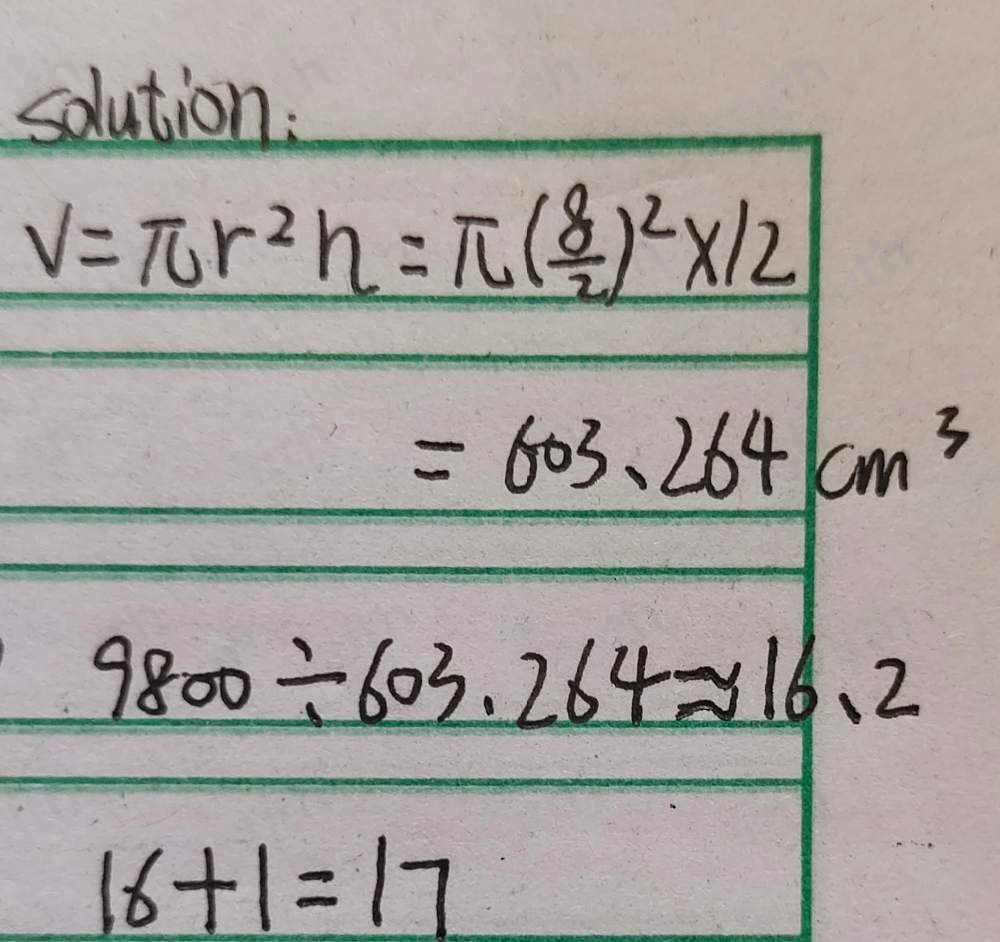 solution:
V=πr²h=π(8/2)²×12
=603.264cm³
9800÷603.264≈16.2
16+1=17